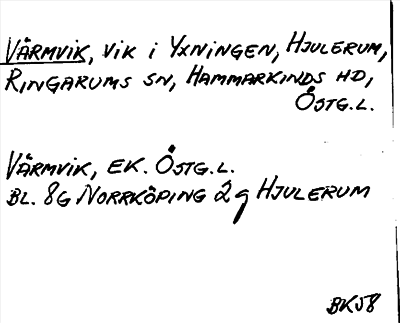 VÄRMVIK, VIK I YXNINGEN, HJULERUM,
RINGARUMS SN, HAMMARKINDS HD,
ÖSTG.L.
VÄRMVIK, EK. ÖSTG.L.
BL. 8G NORRKÖPING 2g HJULERUM
BK58